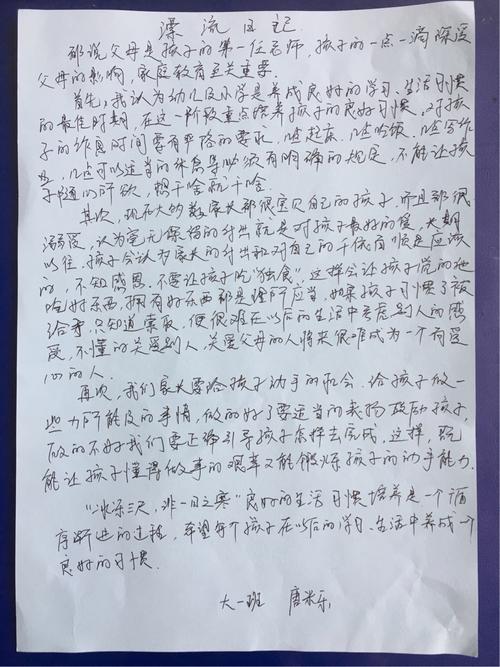 漂流日记
都说父母是孩子的第一任老师，孩子的一点一滴深受
父母的影响，家庭教育至关重要.
首先，我认为幼儿及小学是养成良好的学习、生活习惯
的最佳时期，在这一阶段重点培养孩子的良好习惯，对孩
子的作息时间要有严格的要求，几点起床、几点吃饭、几点写作
业，几点可以适当的休息等必须有明确的规定，不能让孩
子随心所欲，想干啥就干啥.
其次，现在大多数家长都很宝贝自己的孩子，而且都很
溺爱，认为毫无保留的付出就是对孩子最好的爱，长期
以往，孩子会认为家长的付出和对自己的千依百顺是应该
的，不知感恩.不要让孩子吃"独食"，这样会让孩子觉的他
吃好东西，拥有好东西都是理所应当，如果孩子习惯了被
给予，只知道索取，便很难在以后的生活中考虑别人的感
受，不懂的关爱别人、关爱父母的人将来很难成为一个有爱
心的人.
再次，我们家长要给孩子动手的机会.给孩子做一
些力所能及的事情，做的好了要适当的表扬鼓励孩子，
做的不好我们要正确引导孩子怎样去完成，这样，既
能让孩子懂得做事的艰辛又能锻炼孩子的动手能力.
"冰冻三尺，非一日之寒"良好的生活习惯培养是一个循
序渐进的过程，希望每个孩子在以后的学习、生活中养成一个
良好的习惯.
大一班 唐米乐